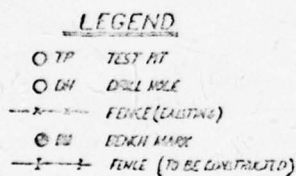 LEGEND
TP TEST PIT
DH DRILL HOLE
FENCE (EXISTING)
BM BENCH MARK
FENCE (TO BE CONSTRUCTED)